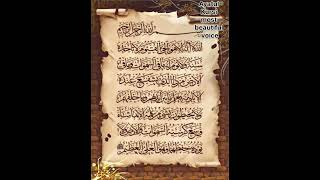 Ayatul
Kursi
most
beautiful
voice
بسم الله الرحمن الرحيم
الله لا إله إلا هو الحي القيوم لا تأخذه
سنة ولا نوم له ما في السموات وما في
الأرض من ذا الذي يشفع عنده
إلا بإذنه يعلم ما بين أيديهم وما خلفهم
ولا يحيطون بشيء من علمه إلا بما شاء
وسع كرسيه السموات والأرض ولا
يؤوده حفظهما وهو العلي العظيم